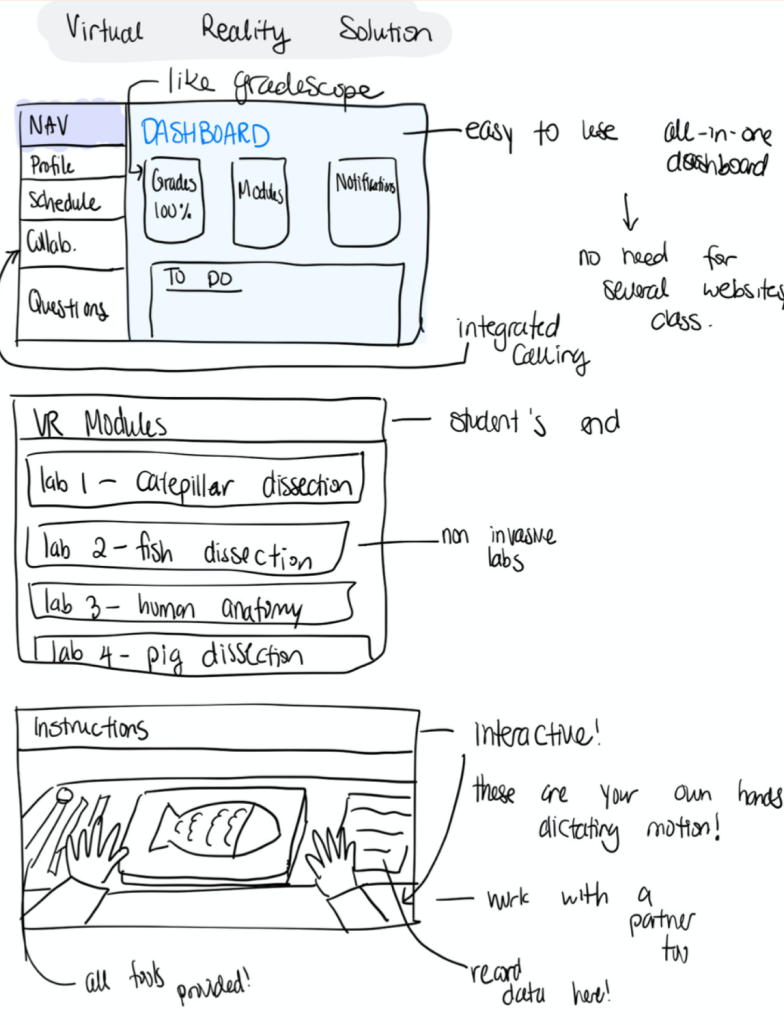 Virtual Reality Solution
like gradescope
NAV
Profile
Schedule
Collab.
Questions
DASHBOARD
Grades
100%
Modules
Notifications
TO DO
easy to use all-in-one
dashboard
no need for
several websites
class.
integrated
Calling
VR Modules
student's end
lab 1 - catepillar dissection
lab 2 - fish dissection
non invasive
labs
lab 3 - human anatomy
lab 4 - pig dissection
Instructions
Interactive!
these are your own hands
dictating motion!
work with a
partner
too
all tools
provided!
record
data here!